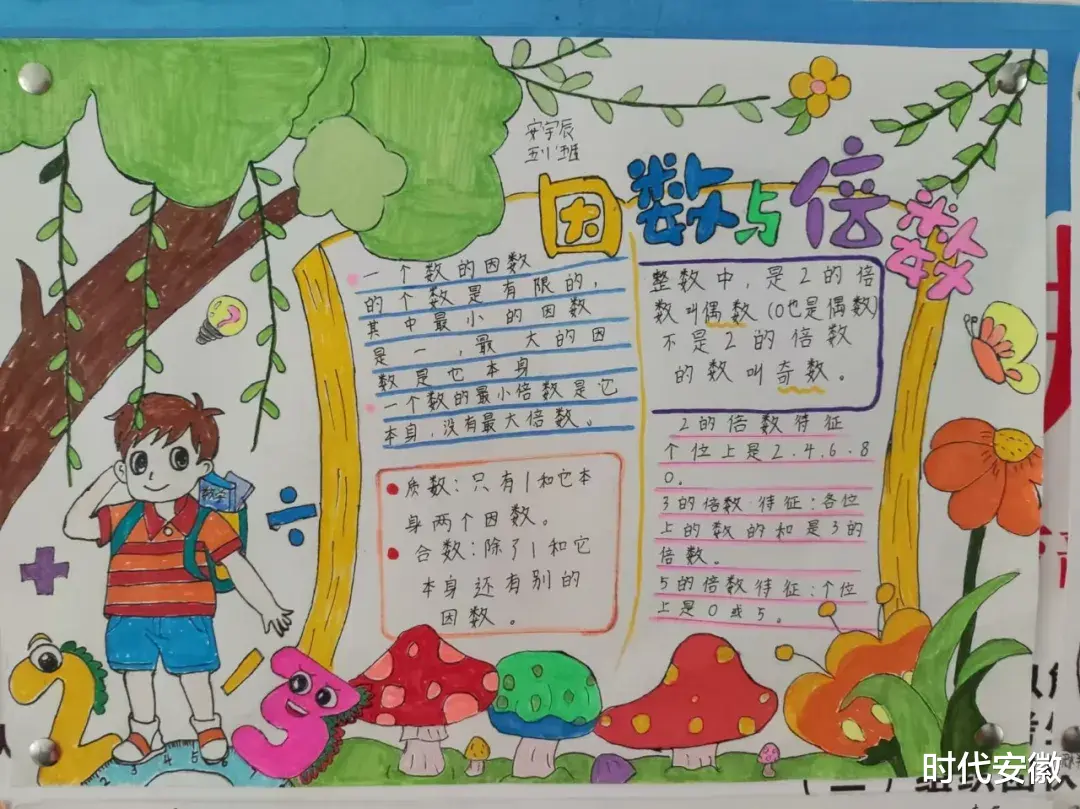 安宇辰
五(1)班
因数与倍数
一个数的因数
的个数是有限的，
其中最小的因数
是一，最大的因
数是它本身
一个数的最小倍数是它
本身，没有最大倍数。
质数：只有1和它本
身两个因数。
合数：除了1和它
本身还有别的
因数。
整数中，是2的倍
数叫偶数(0也是偶数)
不是2的倍数
的数叫奇数。
2的倍数特征
个位上是2.4.6.8
0.
3的倍数特征：各位
上的数的和是3的
倍数。
5的倍数特征：个位
上是0或5。
数学
时代安徽